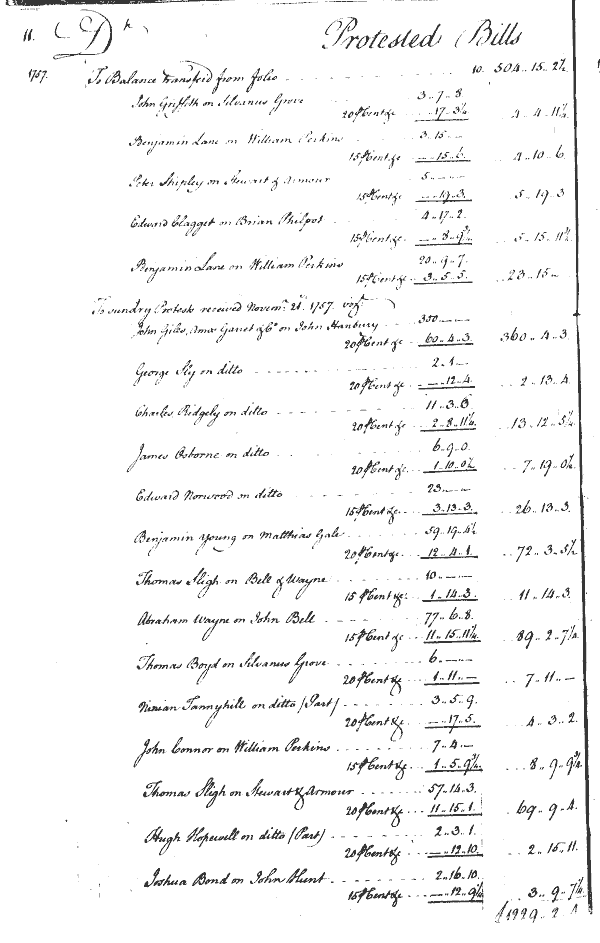 11. Dr Protested Bills
1757. To Balance transferd from folio 10. 504..15..2½
John Griffith on Silvanus Grove 3..7..8
20 ⅌ Cent &c —..17..3¼ 4..4..11¼
Benjamin Lane on William Perkins 3..15—
15 ⅌ Cent &c —..15..6. 4..10..6
Peter Shipley on Stewart & Armour 5..—..—
15 ⅌ Cent &c —..19..3. 5..19..3
Edward Clagget on Brian Philpot 4..17..2.
15 ⅌ Cent &c 5..15..11½
Benjamin Lane on William Perkins 20..9..7.
15 ⅌ Cent &c 3..5..5. 23..15—
To sundry Protests received Novemr. 21st. 1757. vizt
John Giles, Amos Garret & Co. on John Hanbury 300..—..—
20 ⅌ Cent &c 60..4..3. 360..4..3.
George Sly on ditto 2..1..—
20 ⅌ Cent &c —..12..4. 2..13..4.
Charles Ridgely on ditto 11..3..6
20 ⅌ Cent &c 2..8..11¼. 13..12..5¼
James Osborne on ditto 6..9..0.
20 ⅌ Cent &c 1..10..0½ 7..19..0½
Edward Norwood on ditto 23..—..—
15 ⅌ Cent &c 3..13..3. 26..13..3
Benjamin Young on Matthias Gale 59..19..4½
20 ⅌ Cent &c 12..4..1. 72..3..5½
Thomas Sligh on Bell & Wayne 10..—..—
15 ⅌ Cent &c. 1..14..3. 11..14..3
Abraham Wayne on John Bell 77..6..8.
15 ⅌ Cent &c 11..15..11¼ 89..2..7¼
Thomas Boyd on Silvanus Grove 6..—..—
20 ⅌ Cent &c 1..11..— 7..11..—
Ninian Tannyhill on ditto (Part) 3..5..9.
20 ⅌ Cent &c —..17..5. 4..3..2.
John Connor on William Perkins 7..4..—
15 ⅌ Cent &c 1..5..9¾ 8..9..9¾
Thomas Sligh on Stewart & Armour 57..14..3.
20 ⅌ Cent &c 11..15..1. 69..9..4.
Hugh Hopewell on ditto (Part) 2..3..1.
20 ⅌ Cent &c —..12..10. 2..15..11.
Joshua Bond on John Hunt 2..16..10.
15 ⅌ Cent &c —..12..9¼ 3..9..7¼